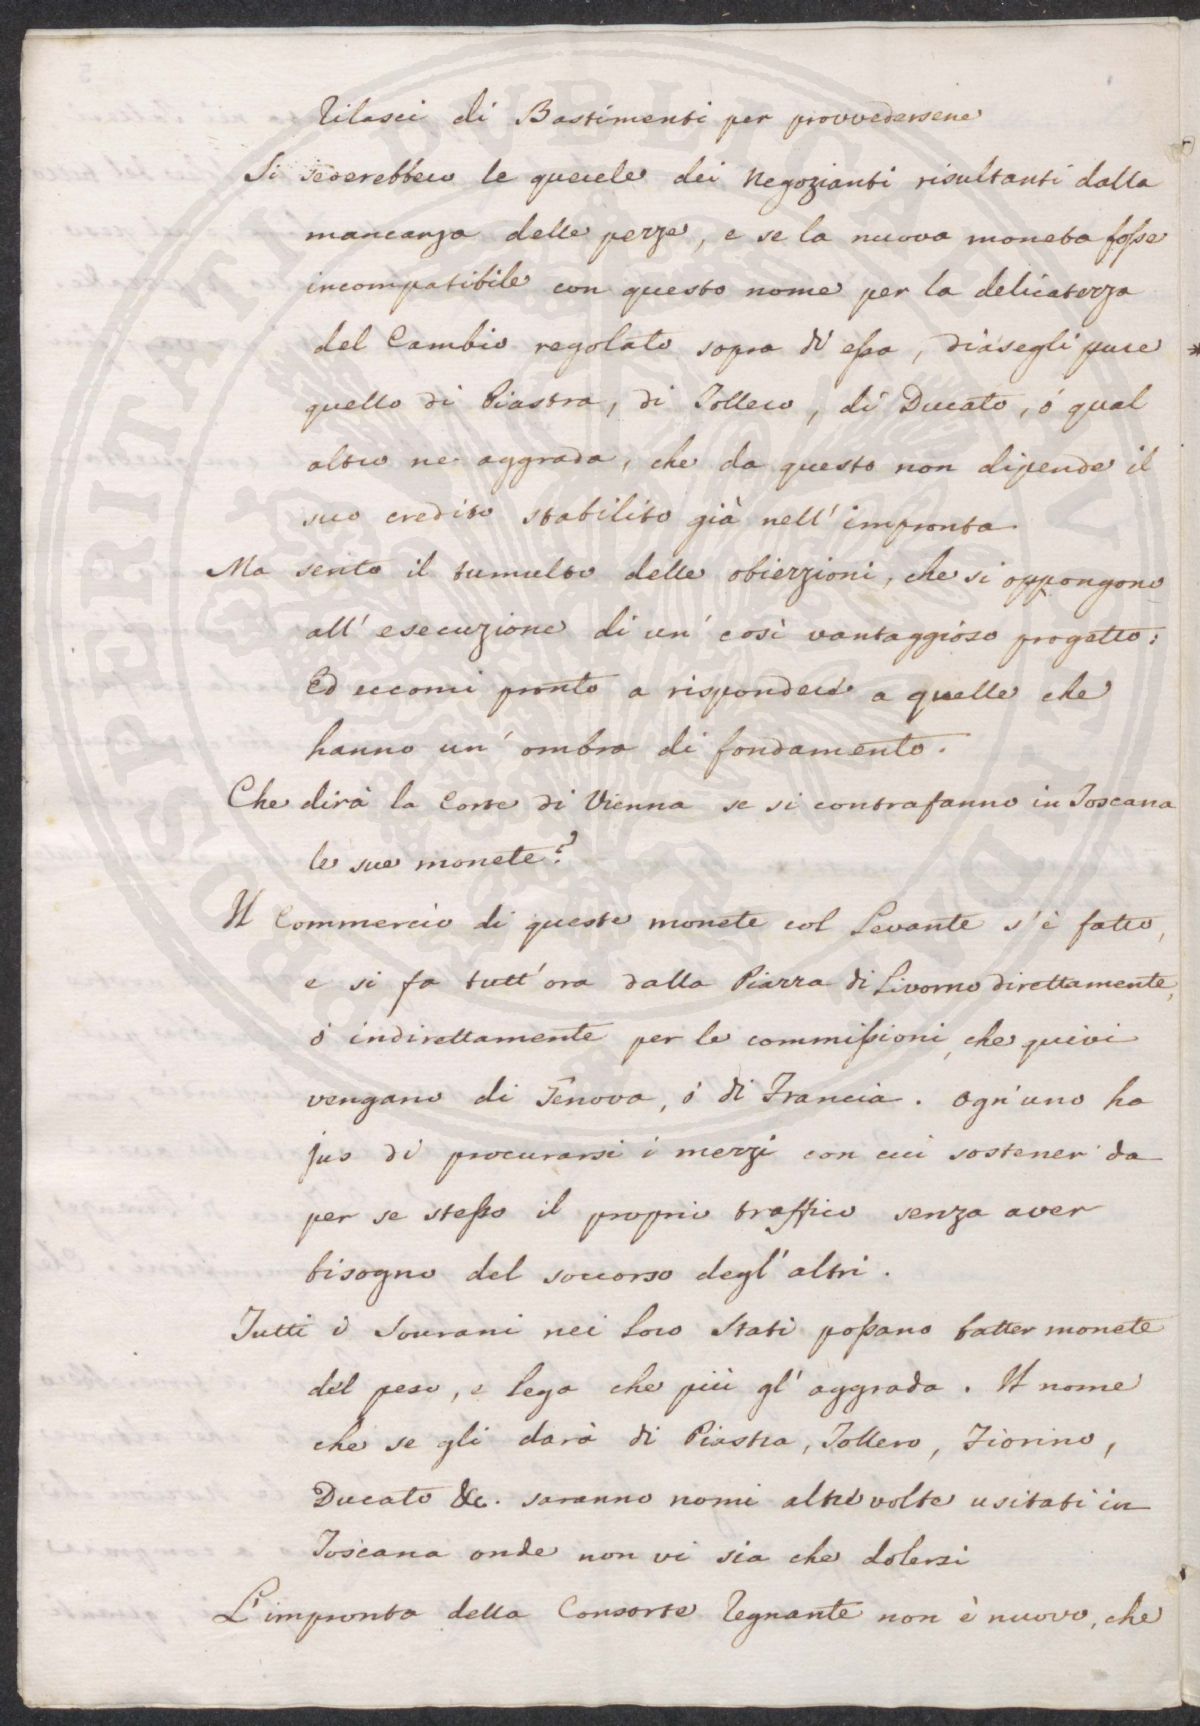 rilasci di Bastimenti per provvedersene
Si sederebbero le querele dei Negozianti risultanti dalla
mancanza delle pezze, e se la nuova moneta fosse
incompatibile con questo nome per la delicatezza
del Cambio regolato sopra di essa, diasegli pure *
quello di Piastra, di Tollero, di Ducato, ó qual
altro ne aggrada, che da questo non dipende il
suo credito stabilito già nell' impronta.
Ma sento il tumulto delle obiezzioni, che si oppongono
all' esecuzione di un' così vantaggioso progetto:
Ed eccomi pronto a rispondere a quelle che
hanno un' ombra di fondamento.
Che dirà la Corte di Vienna se si contrafanno in Toscana
le sue monete?
Il Commercio di queste monete col Levante s'è fatto,
e si fa tutt' ora dalla Piazza di Livorno direttamente,
ó indirettamente per le commissioni, che quivi
vengano di Genova, ó di Francia. Ogn' uno ha
jus di procurarsi i mezzi con cui sostener da
per se stesso il proprio traffico senza aver
bisogno del soccorso degl' altri.
Tutti i Sovrani nei loro Stati possano batter monete
del peso, e lega che più gl' aggrada. Il nome
che se gli darà di Piastra, Tollero, Fiorino,
Ducato &c. saranno nomi altre volte usitati in
Toscana onde non vi sia che dolersi
L' impronta della Consorte Regnante non è nuovo, che
PROSPERITATI PVBLICAE